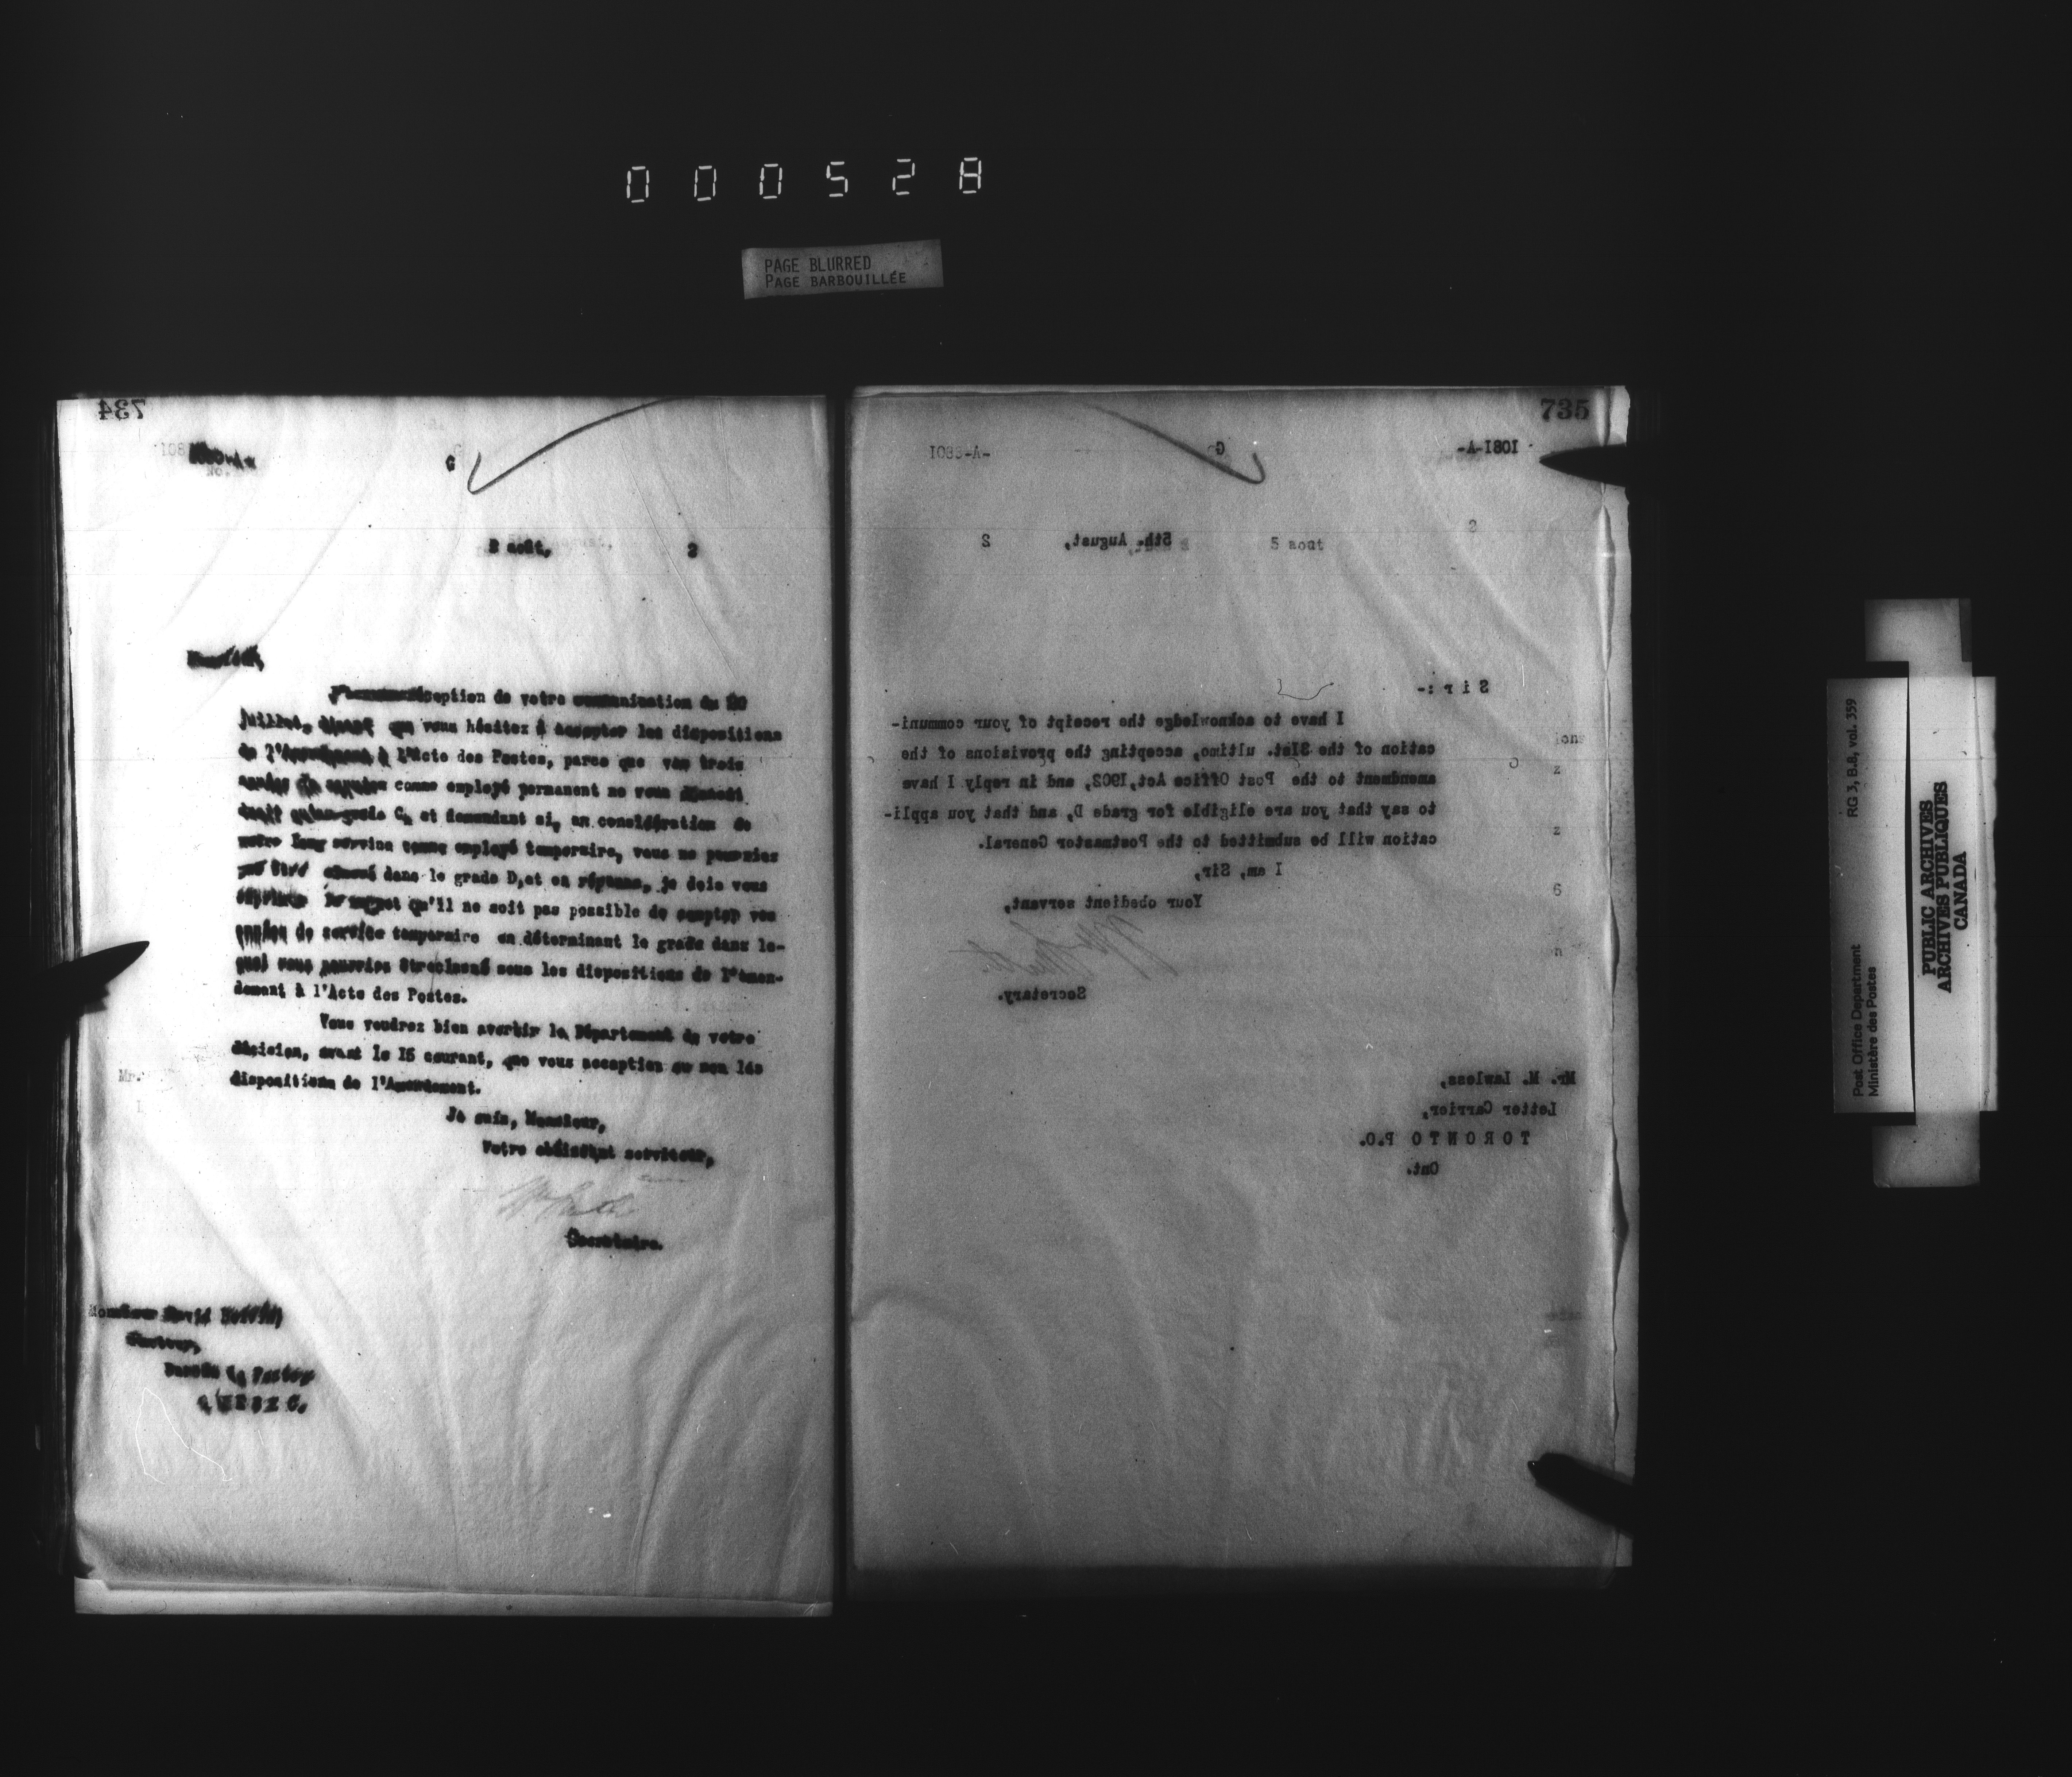 000528
PAGE BLURRED
PAGE BARBOUILLÉE
734
G
2 août, 2
Monsieur,
réception de votre communication du
juillet, disant que vous hésitez à accepter les dispositions
de l'Amendement à l'Acte des Postes, parce que vos trois
années de service comme employé permanent ne vous
C, et demandant si, en considération de
votre long service comme employé temporaire, vous ne pourriez
pas être classé dans le grade D, et en réponse, je dois vous
exprimer le regret qu'il ne soit pas possible de compter vos
années de service temporaire en déterminant le grade dans le-
quel vous pourriez être classé sous les dispositions de l'Amen-
dement à l'Acte des Postes.
Vous voudrez bien avertir le Département de votre
décision, avant le 15 courant, que vous acceptiez ou non les
dispositions de l'Amendement.
Je suis, Monsieur,
Votre obéissant serviteur,
Secrétaire.
Monsieur David
Facteur,
Bureau de Postes
QUEBEC.
735
1081-A-
G
5th. August, 2
5 aout
Sir:-
I have to acknowledge the receipt of your communi-
cation of the 31st. ultimo, accepting the provisions of the
amendment to the Post Office Act, 1902, and in reply I have
to say that you are eligible for grade D, and that you appli-
cation will be submitted to the Postmaster General.
I am, Sir,
Your obedient servant,
Secretary.
Mr. M. Lawless,
Letter Carrier,
TORONTO P.O.
Ont.
Post Office Department
Ministère des Postes
RG 3, B.8, vol. 359
PUBLIC ARCHIVES
ARCHIVES PUBLIQUES
CANADA